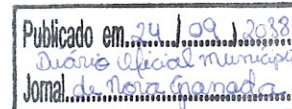 Publicado em 24 / 09 / 2038
Diário Oficial Municipi
Jornal de Nova Granada